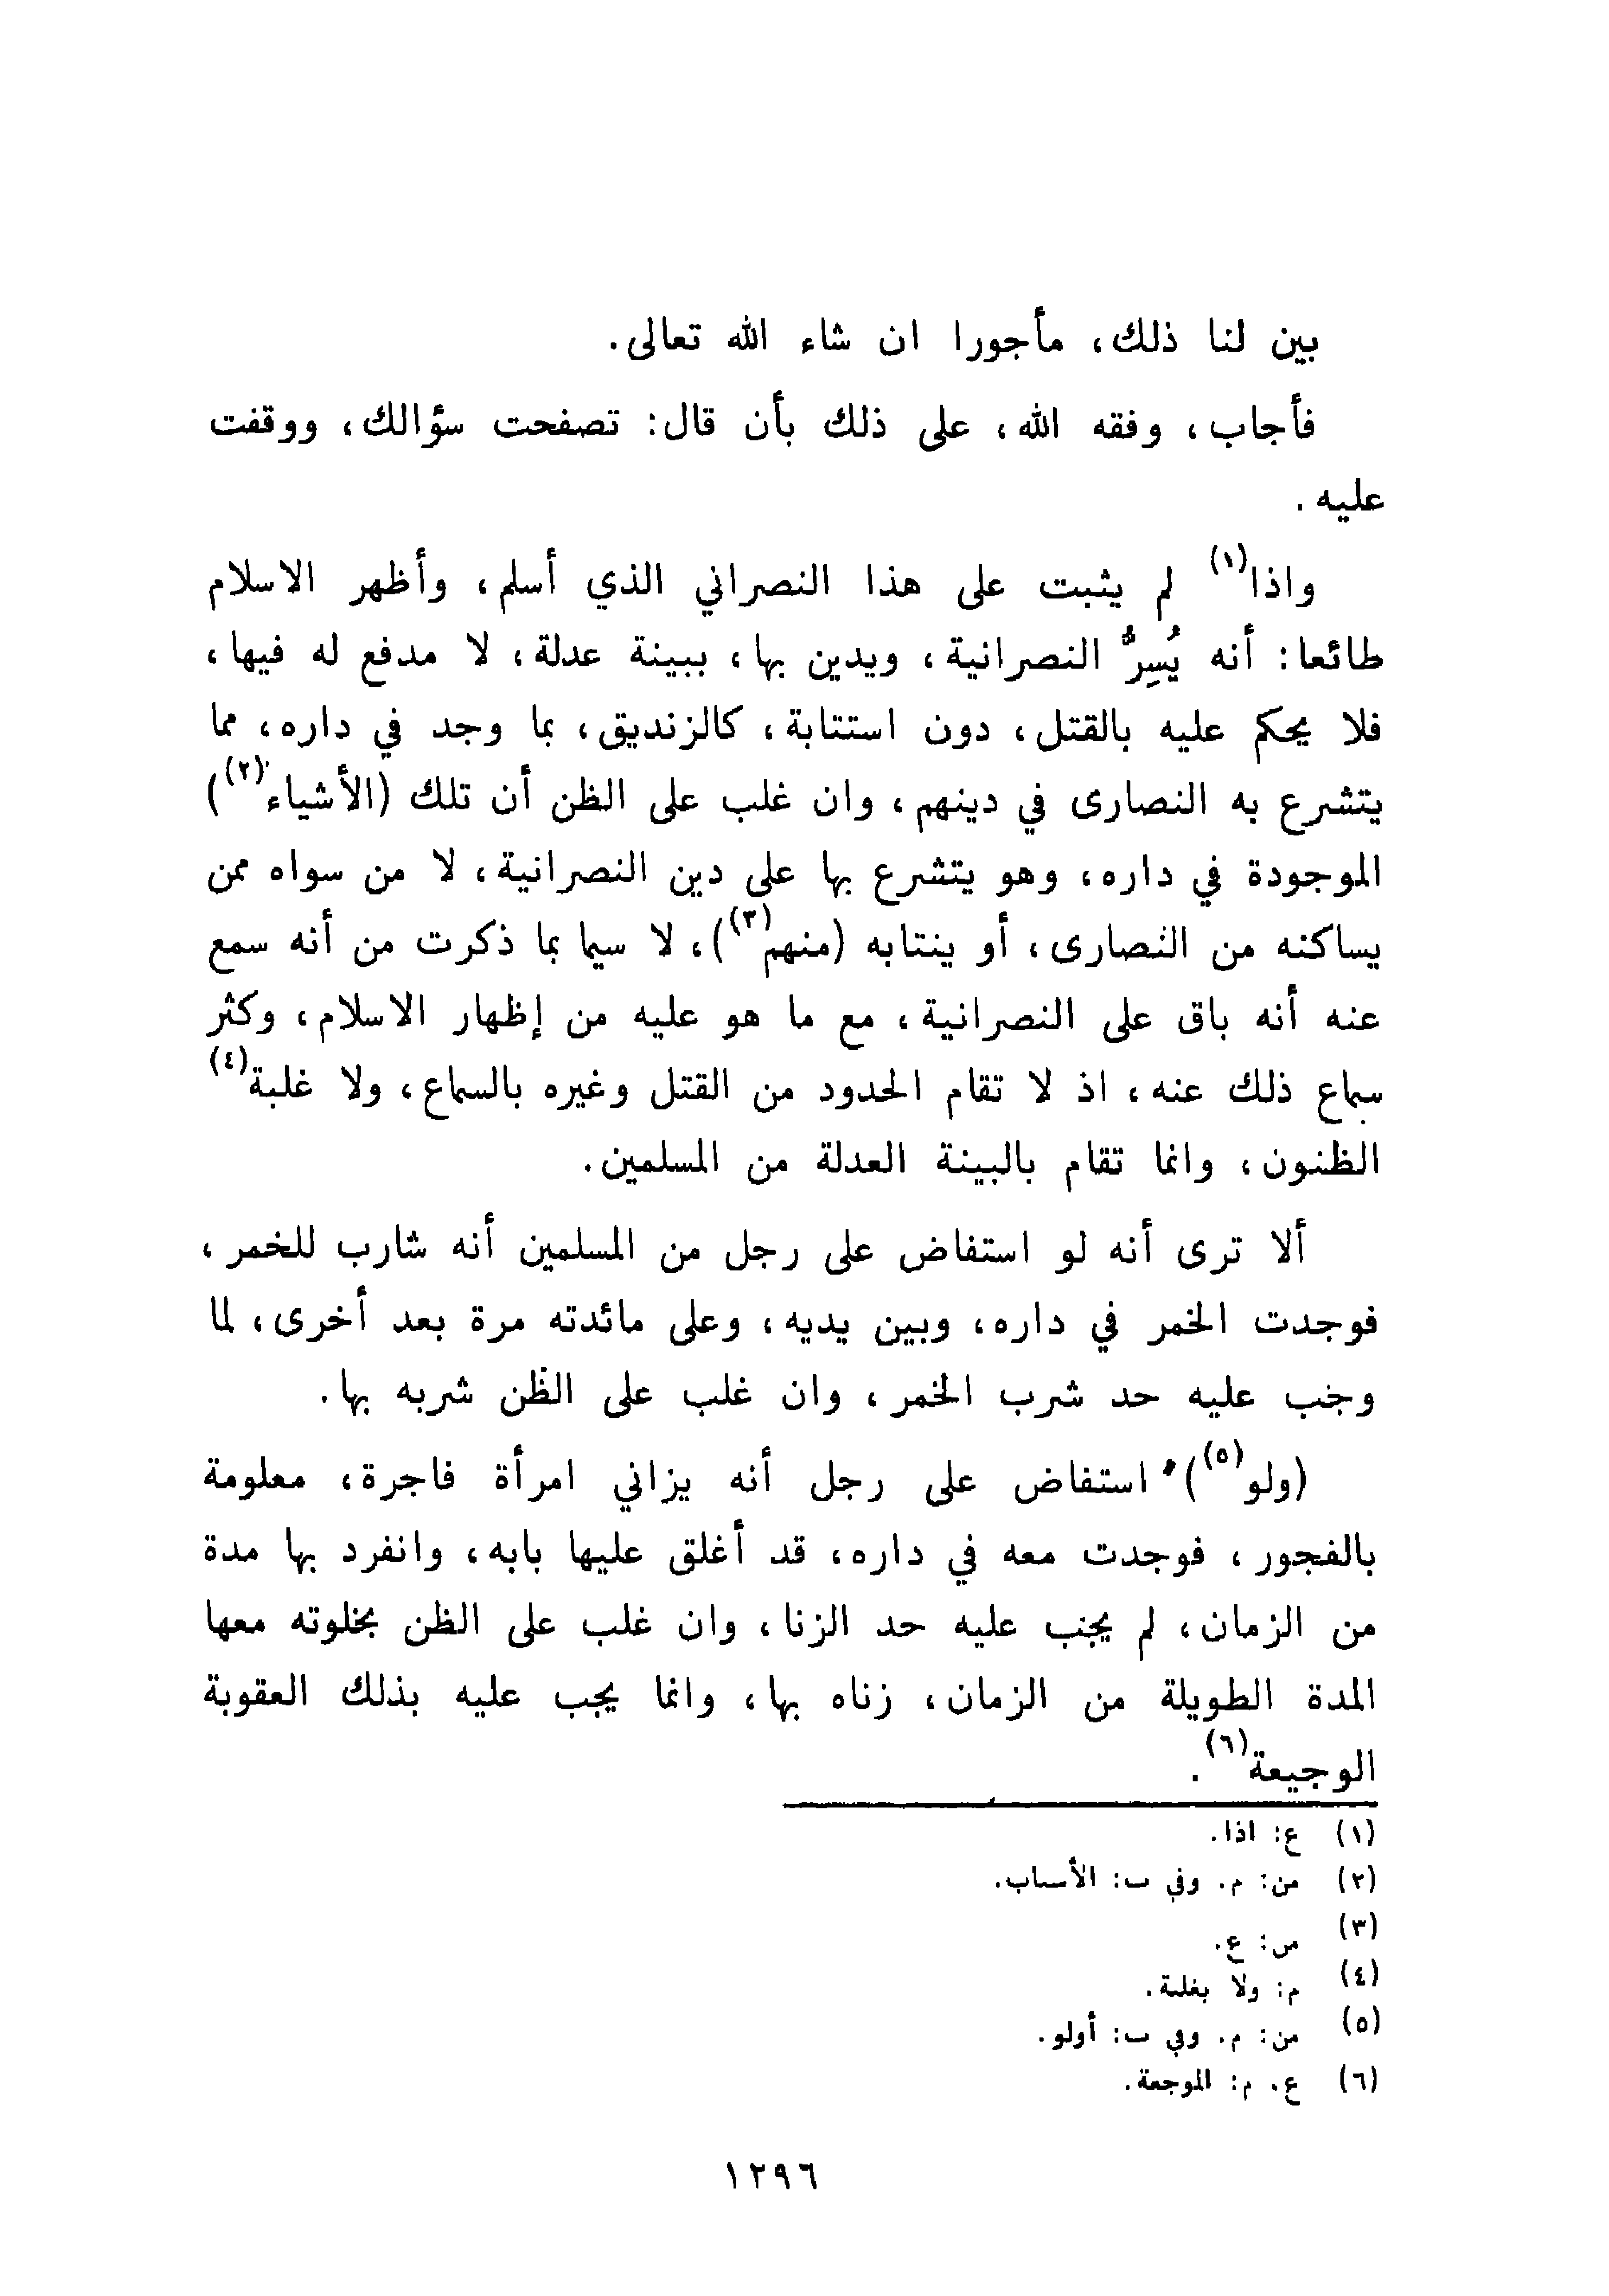 بين لنا ذلك، مأجورا ان شاء الله تعالى.
فأجاب، وفقه الله، على ذلك بأن قال: تصفحت سؤالك، ووقفت
عليه.
واذا(١) لم يثبت على هذا النصراني الذي أسلم، وأظهر الاسلام
طائعا: أنه يُسِرُّ النصرانية، ويدين بها، ببينة عدلة، لا مدفع له فيها،
فلا يحكم عليه بالقتل، دون استتابة، كالزنديق، بما وجد في داره، مما
يتشرع به النصارى في دينهم، وان غلب على الظن أن تلك (الأشياء(٢))
الموجودة في داره، وهو يتشرع بها على دين النصرانية، لا من سواه ممن
يساكنه من النصارى، أو ينتابه (منهم(٣))، لا سيما بما ذكرت من أنه سمع
عنه أنه باق على النصرانية، مع ما هو عليه من إظهار الاسلام، وكثر
سماع ذلك عنه، اذ لا تقام الحدود من القتل وغيره بالسماع، ولا غلبة(٤)
الظنون، وانما تقام بالبينة العدلة من المسلمين.
ألا ترى أنه لو استفاض على رجل من المسلمين أنه شارب للخمر،
فوجدت الخمر في داره، وبين يديه، وعلى مائدته مرة بعد أخرى، لما
وجب عليه حد شرب الخمر، وان غلب على الظن شربه بها.
(ولو(٥)) استفاض على رجل أنه يزاني امرأة فاجرة، معلومة
بالفجور، فوجدت معه في داره، قد أغلق عليها بابه، وانفرد بها مدة
من الزمان، لم يجب عليه حد الزنا، وان غلب على الظن بخلوته معها
المدة الطويلة من الزمان، زناه بها، وانما يجب عليه بذلك العقوبة
الوجيعة(٦).
(١) ع: اذا.
(٢) من: م. وفي ب: الأسباب.
(٣) من: ع.
(٤) م: ولا بغلبة.
(٥) من: م. وفي ب: أولو.
(٦) ع. م: الموجعة.
١٢٩٦